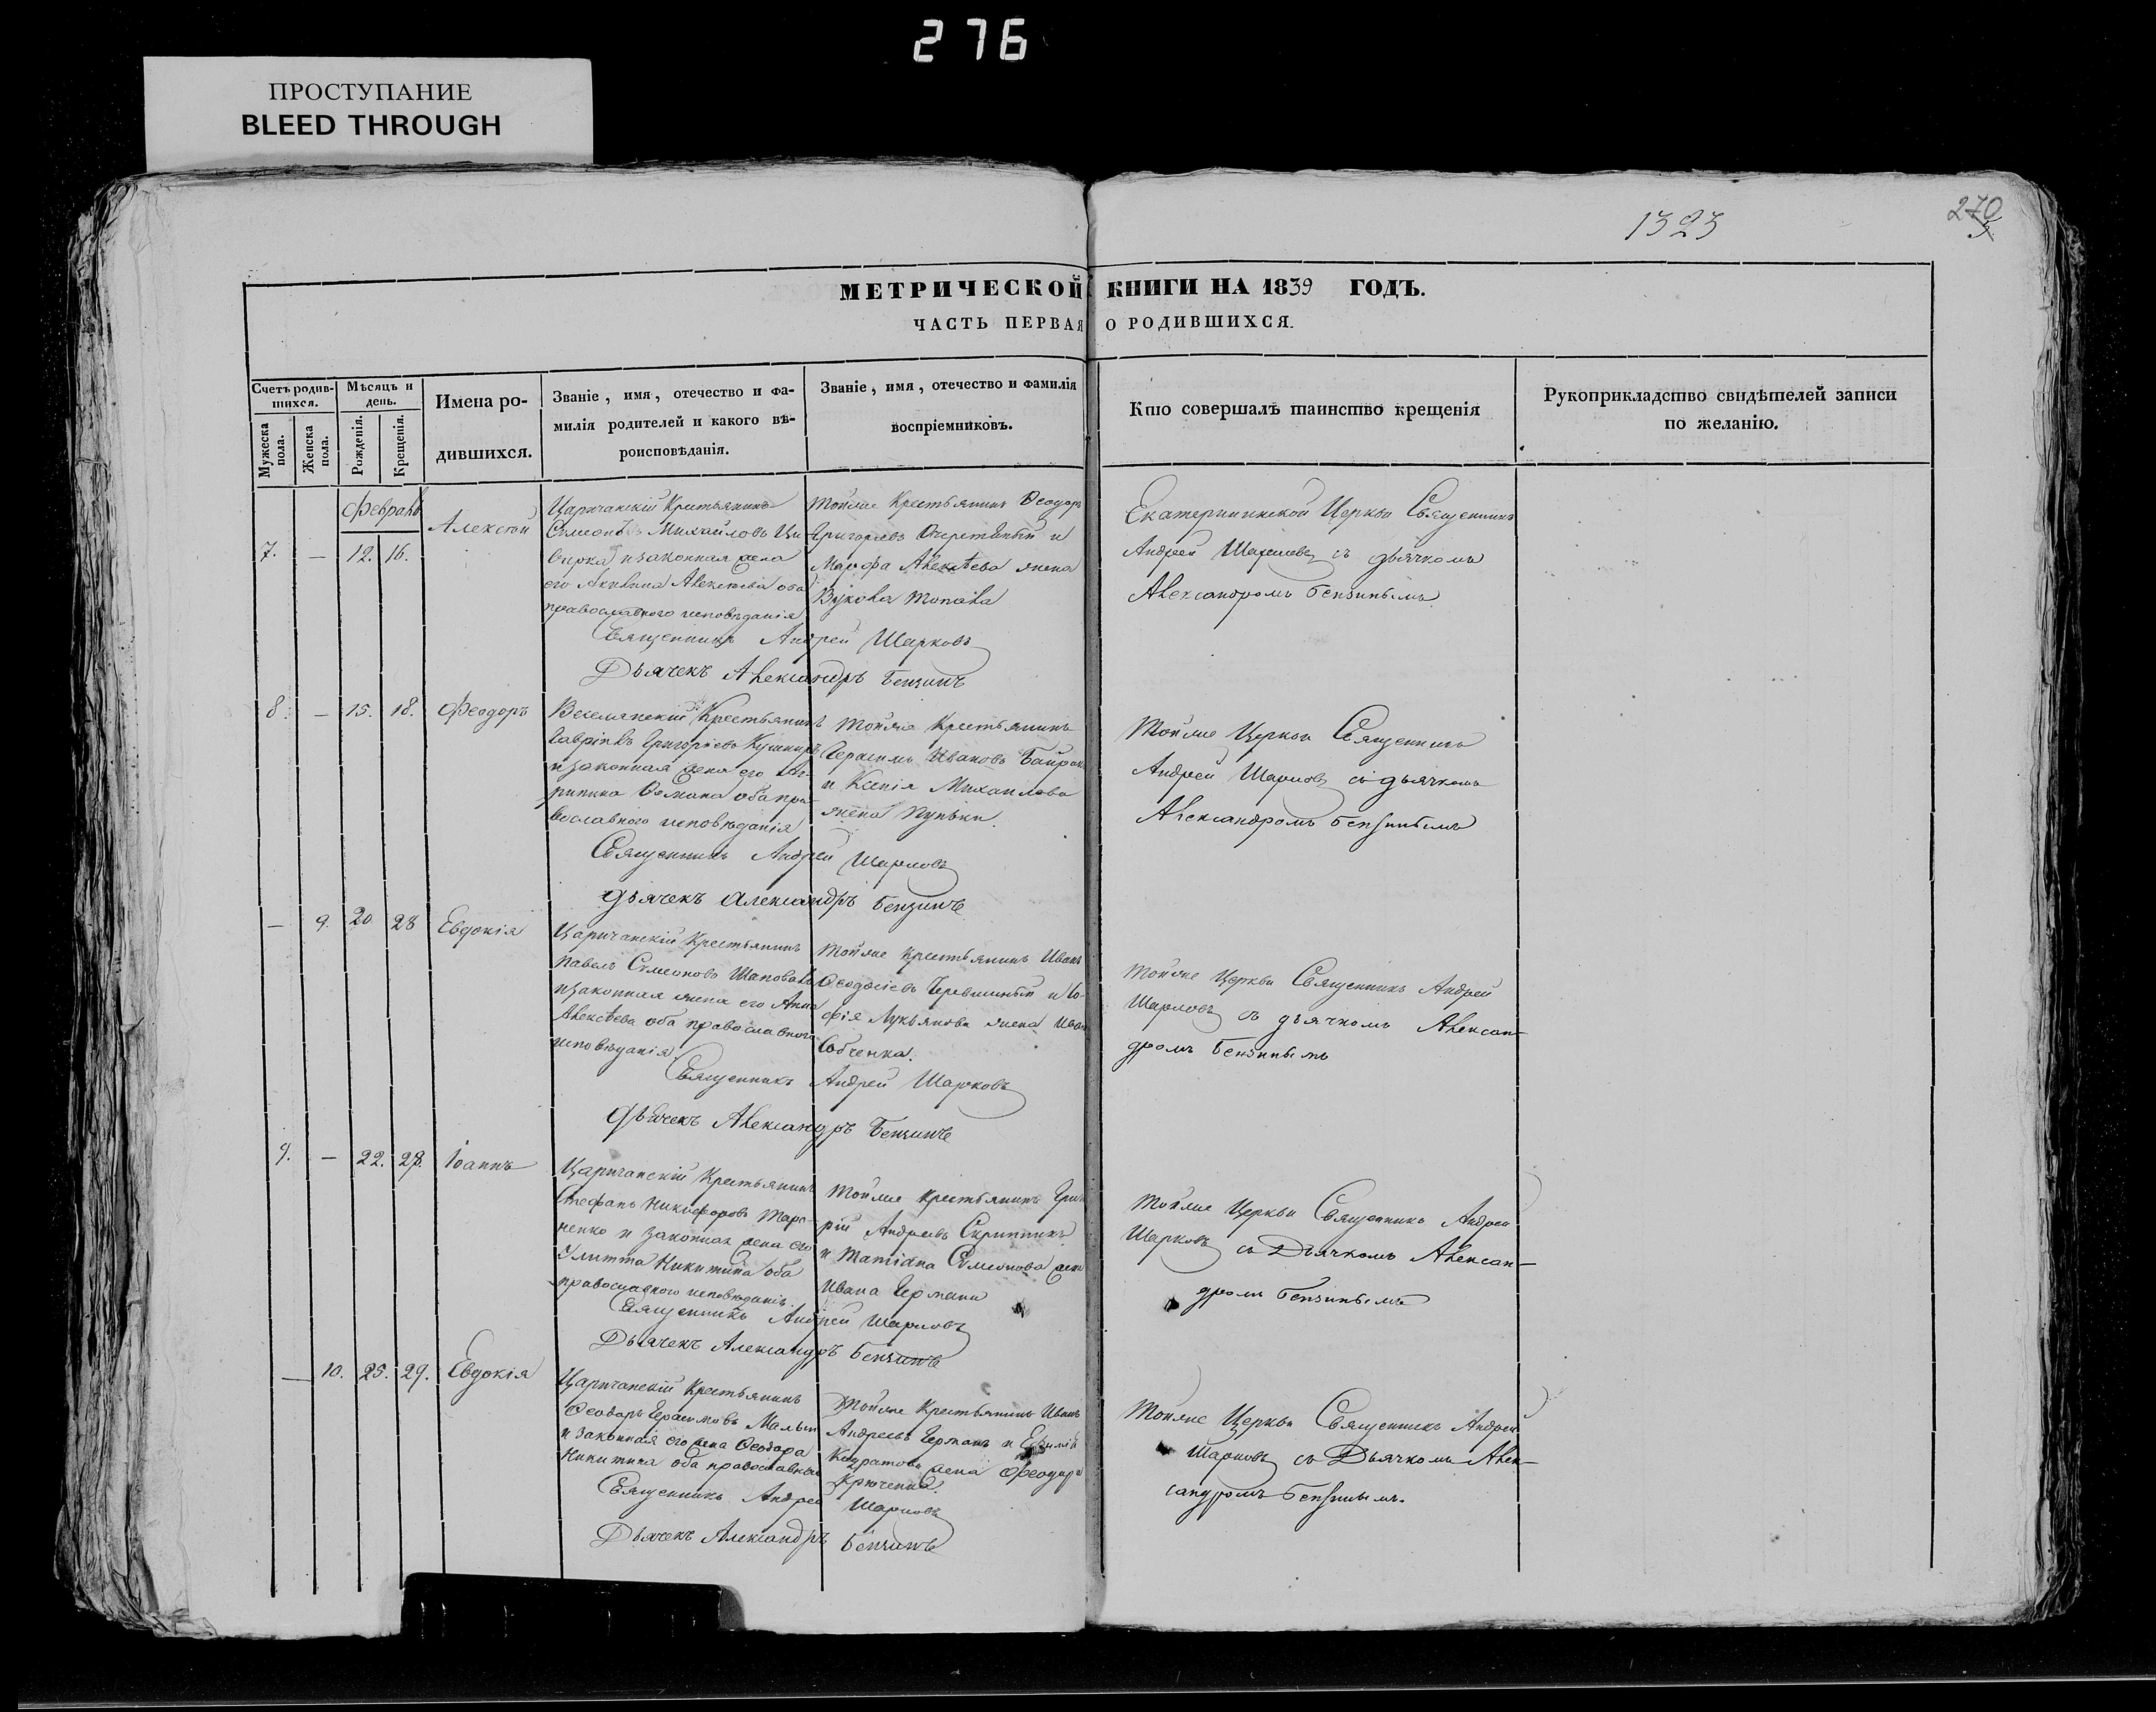 276
ПРОСТУПАНИЕ
BLEED THROUGH
1323
270
МЕТРИЧЕСКОЙ КНИГИ НА 1839 ГОДЪ.
ЧАСТЬ ПЕРВАЯ О РОДИВШИХСЯ.
Счетъ родив-
шихся.
Мужеска
пола.
Женска
пола.
Мѣсяцъ и
день.
Рожденія.
Крещенія.
Имена ро-
дившихся.
Званіе, имя, отечество и фа-
милія родителей и какого вѣ-
роисповѣданія.
Званіе, имя, отечество и фамилія
воспріемниковъ.
Кто совершалъ таинство крещенія
Рукоприкладство свидѣтелей записи
по желанію.
7. — 12. 16.
Алексѣй
Царичанскій Крестьянинъ
Симеонъ Михайловъ
и законная жена
его Акилина Алексѣева оба
православнаго исповѣданія
Тойже Крестьянинъ Ѳеодоръ
Григорьевъ и
Марфа Алексѣева жена
Екатерининской Церкви Священникъ
Андрей Шарковъ съ дьячкомъ
Александромъ Бензинымъ
Священникъ Андрей Шарковъ
Дьячекъ Александръ Бензинъ
8. — 15. 18.
Феодоръ
Крестьянинъ
Гавріилъ Григорьевъ Кушниръ
и законная жена его
оба пра-
вославнаго исповѣданія
Тойже Крестьянинъ
Герасимъ Ивановъ
и Ксенія Михаилова
жена
Тойже Церкви Священникъ
Андрей Шарковъ съ дьячкомъ
Александромъ Бензинымъ
Священникъ Андрей Шарковъ
дьячекъ Александръ Бензинъ
— 9. 20 28
Евдокія
Царичанскій Крестьянинъ
Павелъ Симеоновъ
и законная жена его Анна
Алексѣева оба православнаго
исповѣданія
Тойже крестьянинъ Иванъ
Ѳеодосіевъ и Со-
фія Лукьянова жена
Собченка.
Тойже Церкви Священникъ Андрей
Шарковъ съ дьячкомъ Алексан-
дромъ Бензинымъ
Священникъ Андрей Шарковъ
Дьячекъ Александръ Бензинъ
9. — 22. 28.
Іоаннъ
Царичанскій Крестьянинъ
Стефанъ Никифоровъ
и законная жена его
Улитта Никитина оба
православнаго исповѣданія.
Тойже крестьянинъ
Андреевъ
и Татіана Симеонова жена
Ивана
Тойже Церкви Священникъ Андрей
Шарковъ съ Дьячкомъ Алексан-
дромъ Бензинымъ
Священникъ Андрей Шарковъ
Дьячекъ Александръ Бензинъ
— 10. 25. 29.
Евдокія
Царичанскій Крестьянинъ
Ѳеодоръ Герасимовъ
и законная его жена Ѳеодора
Никитина оба православныи
Тойже Крестьянинъ Иванъ
Андреевъ Германъ и
жена Феодора
Тойже Церкви Священникъ Андрей
Шарковъ съ Дьячкомъ Алек-
сандромъ Бензинымъ.
Священникъ Андрей Шарковъ
Дьячекъ Александръ Бензинъ